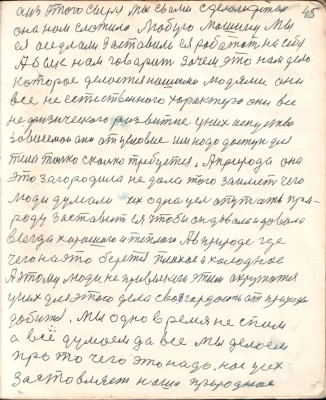 45
а из этого сырья мы с вами сделаем детал
она нам сложило любую машину мы
ея оседлали заставили ея работат на себу
А бык нам говарит зочем это нам дело
которое делоется нашими людями они
все не естественного характера они все
не физического развитие у них искуство
завоеемо они от условие им надо доступ для
тела только сколко требуется, А природа она
это загородила не дала того занимет чего
люди думали их одна цел опутат при-
роду заставит ея чтобы он давало и довало
всегда хорошого и теплого А в природе где
чего на это берется плохое и холодное
А этому люди не привлекли этим окружится
у них для этого дела своя гордост от природы
добится. Мы одно время не спим
а всё думоем да все мы делоем
про то чего это надо. нас всех
заставляет наши природное